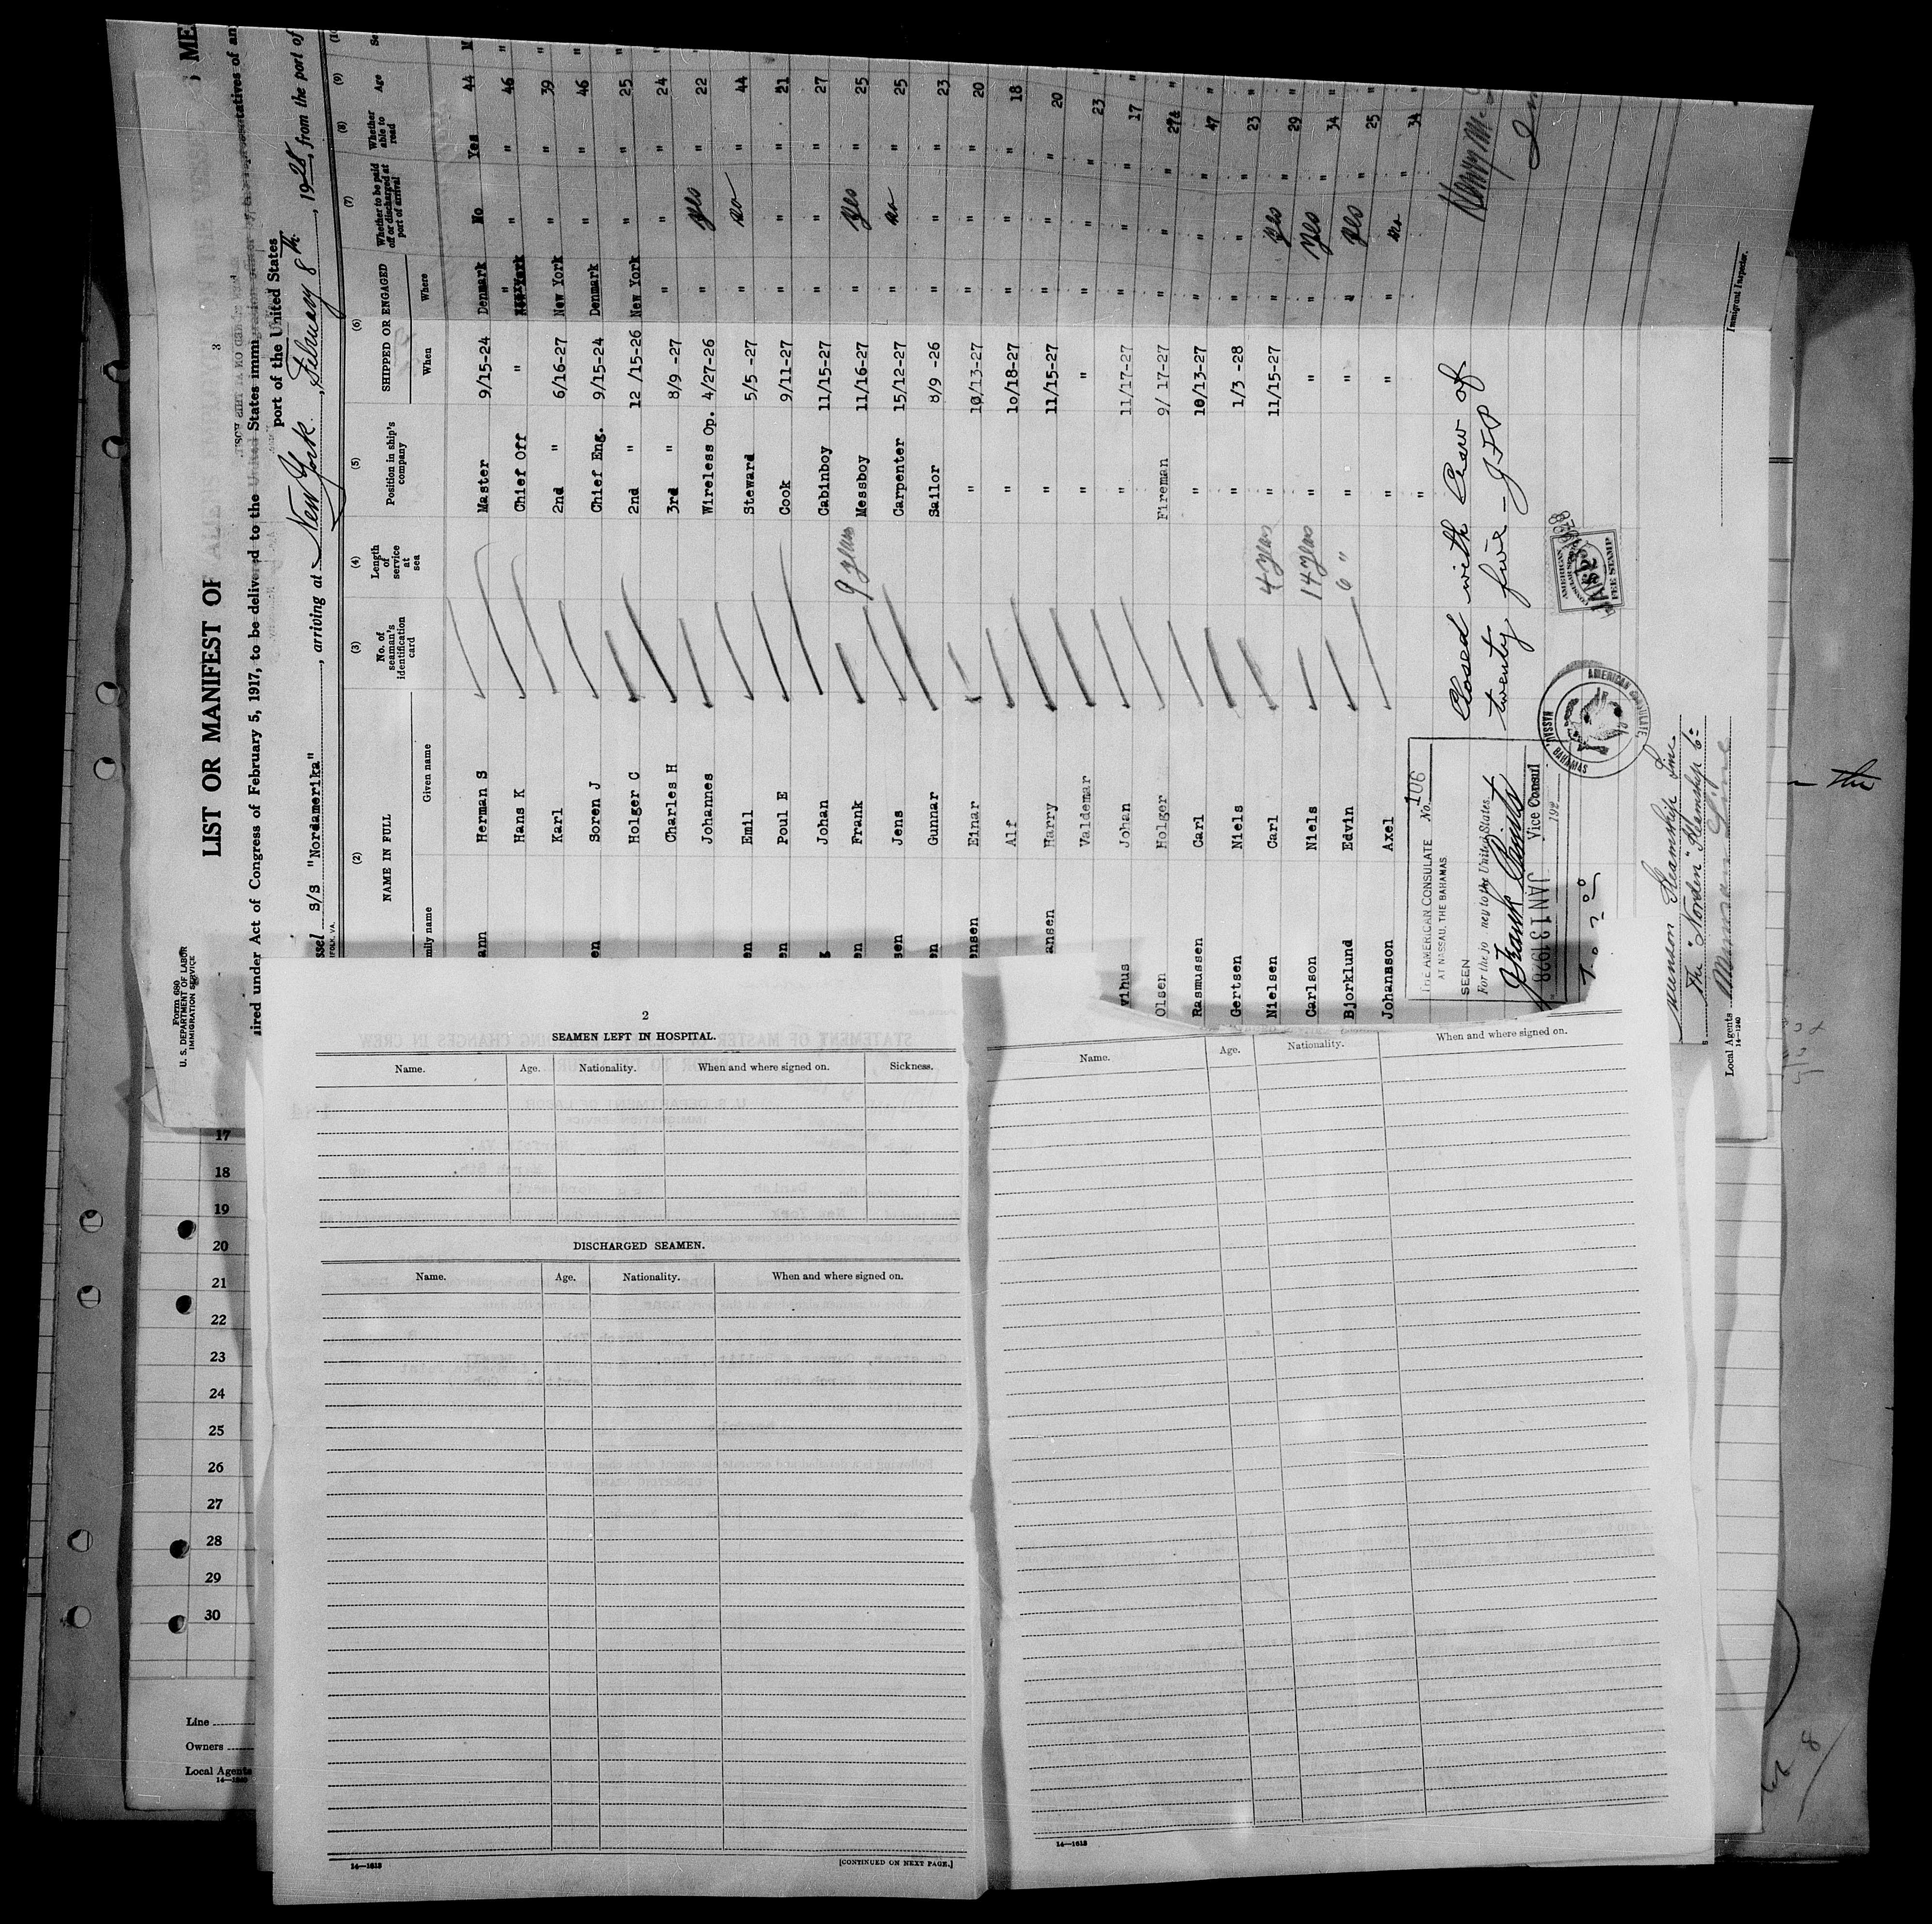 LIST OR MANIFEST OF
3
Form 680
U. S. DEPARTMENT OF LABOR
IMMIGRATION SERVICE
ired under Act of Congress of February 5, 1917, to be delivered to the United States immi
port of the United States
ssel S/S "Nordamerika", arriving at New York, February 8th, 1928, from the port of
(2) (3) (4) (5) (6) (7) (8) (9)
NAME IN FULL
mily name Given name
No. of seaman's identification card
Length of service at sea
Position in ship's company
SHIPPED OR ENGAGED
When Where
Whether to be paid off or discharged at port of arrival
Whether able to read
Age
ann Herman S Master 9/15-24 Denmark No Yes 44 M
Hans K Chief Off " " " " 46 "
Karl 2nd " 6/16-27 New York " " 39 "
en Soren J Chief Eng. 9/15-24 Denmark " " 46 "
Holger C 2nd " 12 /15-26 New York " " 25 "
Charles H 3rd " 8/9 -27 " " " 24 "
Johannes Wireless Op. 4/27-26 " yes " 22 "
en Emil Steward 5/5 -27 " no " 44 "
en Poul E Cook 9/11-27 " " " 21 "
g Johan Cabinboy 11/15-27 " " " 27 "
en Frank 9 years Messboy 11/16-27 " yes " 25 "
sen Jens Carpenter 15/12-27 " no " 25 "
en Gunnar Sailor 8/9 -26 " " " 23 "
ensen Einar " 10/13-27 " " " 20 "
Alf " 10/18-27 " " " 18 "
ansen Harry " 11/15-27 " " " 20 "
Valdemar " " " " " 23 "
vihus Johan " 11/17-27 " " " 17 "
Olsen Holger Fireman 9/ 17-27 " " " 27 "
Rasmussen Carl " 10/13-27 " " " 47 "
Gertsen Niels " 1/3 -28 " " " 23 "
Nielsen Carl 4 years " 11/15-27 " yes " 29 "
Carlson Niels 14 years " " " yes " 34 "
Bjorklund Edvin 6 " " " " yes " 25 "
Johansson Axel " " " no " 34 "
Closed with Crew of
twenty five
THE AMERICAN CONSULATE No. 106
AT NASSAU, THE BAHAMAS
SEEN
For the jo ney to the United States.
Vice Consul
JAN 13 1928 192
AMERICAN CONSULATE,
NASSAU, BAHAMAS
AMERICAN
FEE STAMP
Munson Steamship Line
The "Norden" Steamship Co
Local Agents Munson Line
14-1240
Immigrant Inspector.
the
17
18
19
20
21
22
23
24
25
26
27
28
29
30
Line
Owners
Local Agents
14-1240
2
SEAMEN LEFT IN HOSPITAL.
Name. Age. Nationality. When and where signed on. Sickness.
DISCHARGED SEAMEN.
Name. Age. Nationality. When and where signed on.
14-1618
[CONTINUED ON NEXT PAGE.]
Name. Age. Nationality. When and where signed on.
14-1618